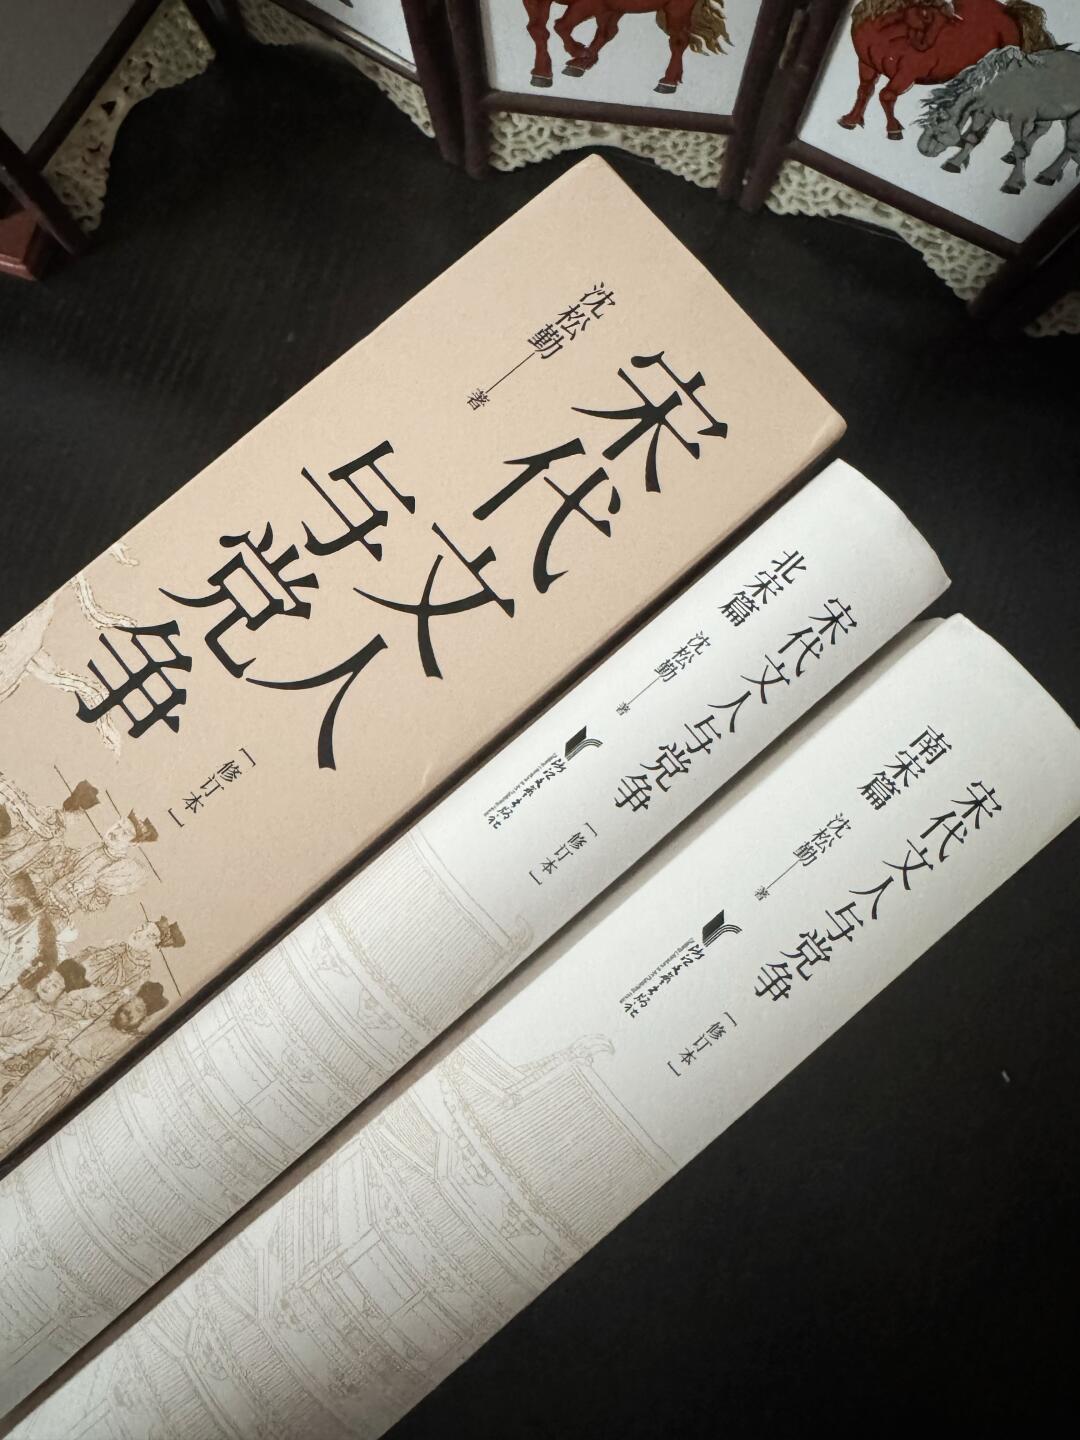 宋代文人
与党争
[修订本]
沈松勤——著
宋代文人与党争
[修订本]
北宋篇
沈松勤——著
浙江文艺出版社
宋代文人与党争
[修订本]
南宋篇
沈松勤——著
浙江文艺出版社